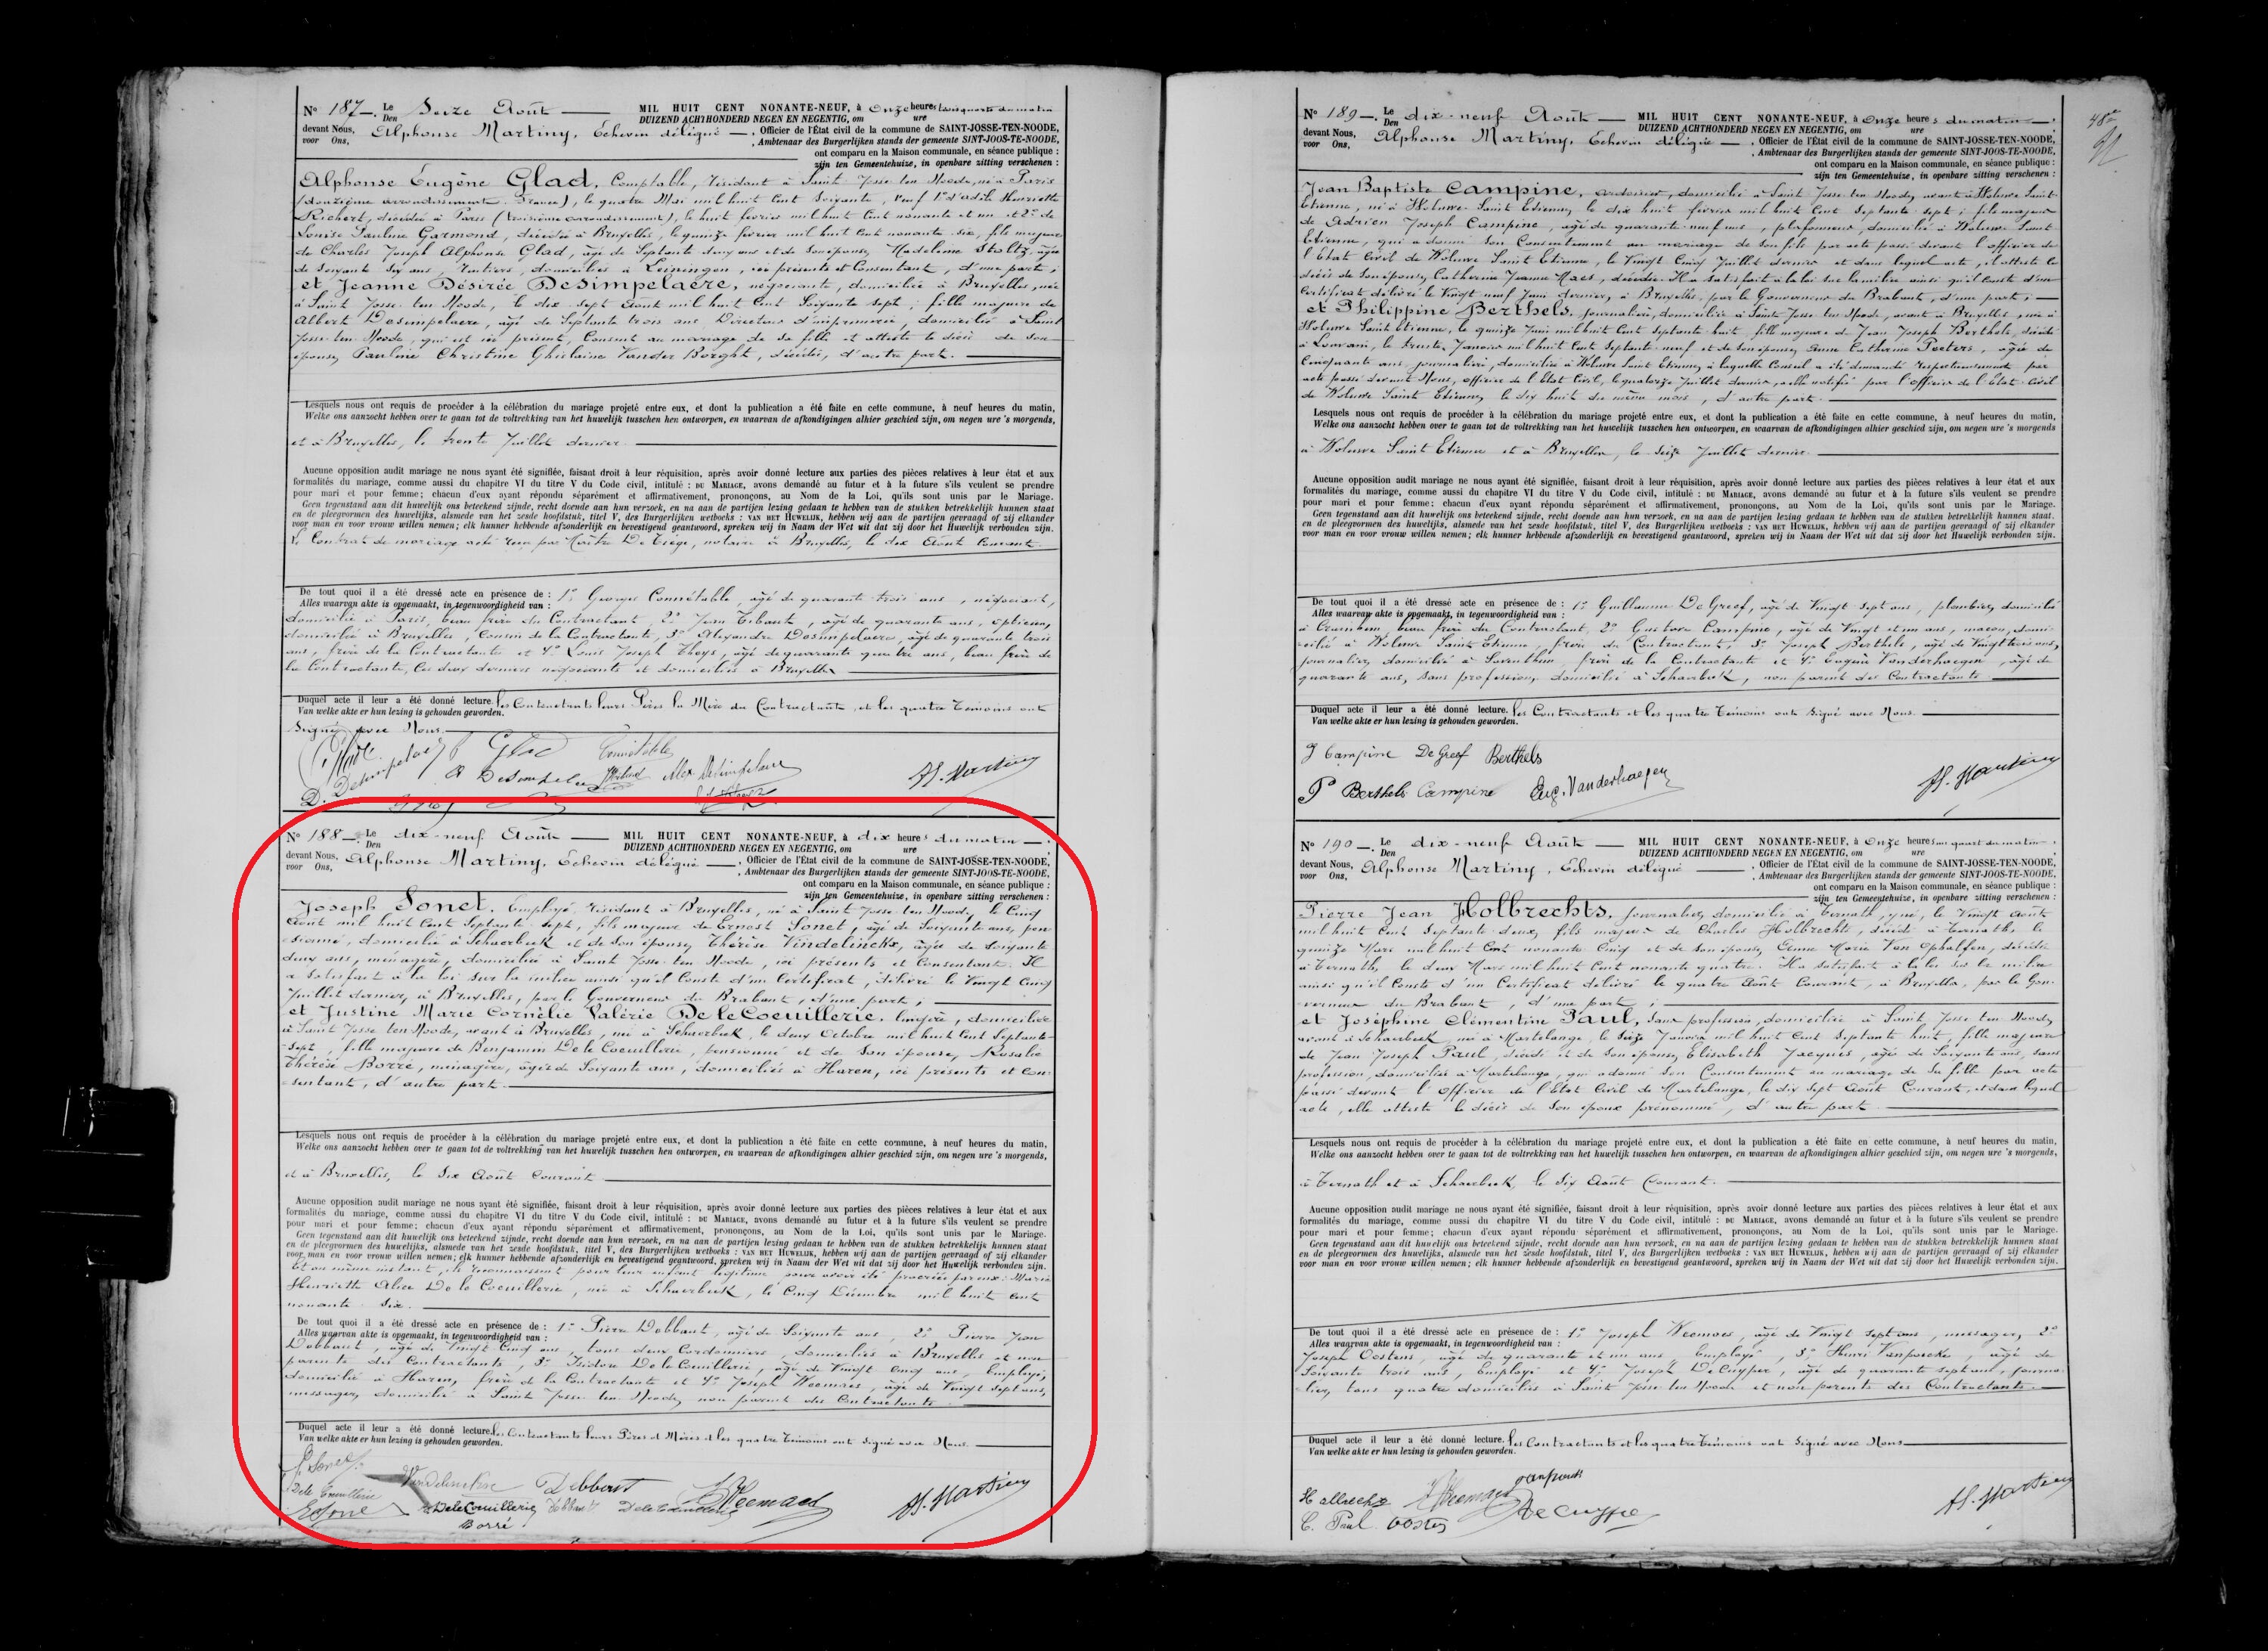 N° 187. Le Seize Août MIL HUIT CENT NONANTE-NEUF, à Onze heures trois quarts du matin
Den DUIZEND ACHTHONDERD NEGEN EN NEGENTIG, om ure
devant Nous, Alphonse Martiny, Echevin délégué, Officier de l'État civil de la commune de SAINT-JOSSE-TEN-NOODE,
voor Ons, Ambtenaar des Burgerlijken stands der gemeente SINT-JOOS-TE-NOODE,
ont comparu en la Maison communale, en séance publique :
zijn ten Gemeentehuize, in openbare zitting verschenen :
Alphonse Eugène Glad, Comptable, résidant à Saint Josse ten Noode, né à Paris
(douzième arrondissement, France), le quatre Mai mil huit Cent Soixante, Veuf 1° d'Adèle Henriette
Richert, décédée à Paris (troisième arrondissement), le huit février mil huit Cent nonante et un et 2° de
Louise Pauline Garmond, décédée à Bruxelles, le quinze février mil huit Cent nonante six, fils majeur
de Charles Joseph Alphonse Glad, âgé de Septante deux ans et de son épouse, Madeleine Stoltz, âgée
de Soixante Six ans, rentiers, domiciliés à ici présents et Consentant, d'une part ;
et Jeanne Désirée Desimpelaere, négociante, domiciliée à Bruxelles, née
à Saint Josse ten Noode, le dix Sept Août mil huit Cent Soixante Sept ; fille majeure de
Albert Desimpelaere, âgé de Septante trois ans, Directeur d'imprimerie, domicilié à Saint
Josse ten Noode, qui est ici présent, Consent au mariage de sa fille et atteste le décès de son
épouse, Pauline Christine Ghislaine Vander Borght, décédée, d'autre part.
Lesquels nous ont requis de procéder à la célébration du mariage projeté entre eux, et dont la publication a été faite en cette commune, à neuf heures du matin,
Welke ons aanzocht hebben over te gaan tot de voltrekking van het huwelijk tusschen hen ontworpen, en waarvan de afkondigingen alhier geschied zijn, om negen ure 's morgends,
et à Bruxelles, le trente Juillet dernier.
Aucune opposition audit mariage ne nous ayant été signifiée, faisant droit à leur réquisition, après avoir donné lecture aux parties des pièces relatives à leur état et aux
formalités du mariage, comme aussi du chapitre VI du titre V du Code civil, intitulé : DU MARIAGE, avons demandé au futur et à la future s'ils veulent se prendre
pour mari et pour femme; chacun d'eux ayant répondu séparément et affirmativement, prononçons, au Nom de la Loi, qu'ils sont unis par le Mariage.
Geen tegenstand aan dit huwelijk ons beteekend zijnde, recht doende aan hun verzoek, en na aan de partijen lezing gedaan te hebben van de stukken betrekkelijk hunnen staat
en de pleegvormen des huwelijks, alsmede van het zesde hoofdstuk, titel V, des Burgerlijken wetboeks : VAN HET HUWELIJK, hebben wij aan de partijen gevraagd of zij elkander
voor man en voor vrouw willen nemen; elk hunner hebbende afzonderlijk en bevestigend geantwoord, spreken wij in Naam der Wet uit dat zij door het Huwelijk verbonden zijn.
Le Contrat de mariage a été reçu par Maître De Tiège, notaire à Bruxelles, le dix Août Courant.
De tout quoi il a été dressé acte en présence de : 1° Georges Connétable, âgé de quarante trois ans, négociant,
Alles waarvan akte is opgemaakt, in tegenwoordigheid van :
domicilié à Paris, beau frère du Contractant, 2° Jean Tibaut, âgé de quarante ans, opticien,
domicilié à Bruxelles, Cousin de la Contractante, 3° Alexandre Desimpelaere, âgé de quarante trois
ans, frère de la Contractante et 4° Louis Joseph Theys, âgé de quarante quatre ans, beau frère de
la Contractante, Ces deux derniers négociants et domiciliés à Bruxelles
Duquel acte il leur a été donné lecture. les Contractants leurs Pères la Mère du Contractant et les quatre témoins ont
Van welke akte er hun lezing is gehouden geworden.
Signé avec Nous.
Glad Connétable
D. Desimpelaere A Desimpelaere Alex Desimpelaere Al. Martiny
N° 188. Le dix-neuf Août MIL HUIT CENT NONANTE-NEUF, à dix heures du matin
Den DUIZEND ACHTHONDERD NEGEN EN NEGENTIG, om ure
devant Nous, Alphonse Martiny, Echevin délégué, Officier de l'État civil de la commune de SAINT-JOSSE-TEN-NOODE,
voor Ons, Ambtenaar des Burgerlijken stands der gemeente SINT-JOOS-TE-NOODE,
ont comparu en la Maison communale, en séance publique :
zijn ten Gemeentehuize, in openbare zitting verschenen :
Joseph Sonet, Employé résidant à Bruxelles, né à Saint Josse ten Noode, le Cinq
Août mil huit Cent Septante Sept, fils majeur de Ernest Sonet, âgé de Soixante ans, pen
sionné, domicilié à Schaerbeek et de son épouse, Thérèse Vandelinckx, âgée de Soixante
deux ans, ménagère, domiciliée à Saint Josse ten Noode, ici présents et Consentant. Il
a satisfait à la loi sur la milice ainsi qu'il Conste d'un Certificat, délivré le Vingt Cinq
Juillet dernier, à Bruxelles, par le Gouverneur du Brabant, d'une part ;
et Justine Marie Cornélie Valérie De le Coeuillerie, lingère, domiciliée
à Saint Josse ten Noode, avant à Bruxelles, née à Schaerbeek, le deux Octobre mil huit Cent Septante
Sept, fille majeure de Benjamin De le Coeuillerie, pensionné et de Son épouse, Rosalie
Thérèse Borré, ménagère, âgés de Soixante ans, domiciliés à Haren, ici présents et Con
sentant, d'autre part.
Lesquels nous ont requis de procéder à la célébration du mariage projeté entre eux, et dont la publication a été faite en cette commune, à neuf heures du matin,
Welke ons aanzocht hebben over te gaan tot de voltrekking van het huwelijk tusschen hen ontworpen, en waarvan de afkondigingen alhier geschied zijn, om negen ure 's morgends,
et à Bruxelles, le Six Août Courant
Aucune opposition audit mariage ne nous ayant été signifiée, faisant droit à leur réquisition, après avoir donné lecture aux parties des pièces relatives à leur état et aux
formalités du mariage, comme aussi du chapitre VI du titre V du Code civil, intitulé : DU MARIAGE, avons demandé au futur et à la future s'ils veulent se prendre
pour mari et pour femme; chacun d'eux ayant répondu séparément et affirmativement, prononçons, au Nom de la Loi, qu'ils sont unis par le Mariage.
Geen tegenstand aan dit huwelijk ons beteekend zijnde, recht doende aan hun verzoek, en na aan de partijen lezing gedaan te hebben van de stukken betrekkelijk hunnen staat
en de pleegvormen des huwelijks, alsmede van het zesde hoofdstuk, titel V, des Burgerlijken wetboeks : VAN HET HUWELIJK, hebben wij aan de partijen gevraagd of zij elkander
voor man en voor vrouw willen nemen; elk hunner hebbende afzonderlijk en bevestigend geantwoord, spreken wij in Naam der Wet uit dat zij door het Huwelijk verbonden zijn.
Et au même instant, ils reconnaissent pour leur enfant légitime, pour avoir été procréée par eux : Marie
Henriette Alice De le Coeuillerie, née à Schaerbeek, le Cinq Décembre mil huit cent
nonante Six.
De tout quoi il a été dressé acte en présence de : 1° Pierre Debbaut, âgé de Soixante ans, 2° Pierre Jean
Alles waarvan akte is opgemaakt, in tegenwoordigheid van :
Debbaut, âgé de Vingt Cinq ans, tous deux Cordonniers, domiciliés à Bruxelles et non
parents des Contractants, 3° Isidore De le Coeuillerie, âgé de Vingt Cinq ans, Employé,
domicilié à Haren, frère de la Contractante et 4° Joseph Weemaes, âgé de Vingt Sept ans,
messager, domicilié à Saint Josse ten Noode, non parent des Contractants.
Duquel acte il leur a été donné lecture. les Contractants leurs Pères et Mères et les quatre témoins ont signé avec Nous.
Van welke akte er hun lezing is gehouden geworden.
J. Sonet Vandelinckx Debbaut J Weemaes Al. Martiny
Dele Coeuillerie DeleCouillerie Debbaut
E Sonet Borré
48e
N° 189. Le dix-neuf Août MIL HUIT CENT NONANTE-NEUF, à Onze heures du matin
Den DUIZEND ACHTHONDERD NEGEN EN NEGENTIG, om ure
devant Nous, Alphonse Martiny, Echevin délégué, Officier de l'État civil de la commune de SAINT-JOSSE-TEN-NOODE,
voor Ons, Ambtenaar des Burgerlijken stands der gemeente SINT-JOOS-TE-NOODE,
ont comparu en la Maison communale, en séance publique :
zijn ten Gemeentehuize, in openbare zitting verschenen :
Jean Baptiste Campine, ardoisier, domicilié à Saint Josse ten Noode, avant à Woluwe Saint
Etienne, né à Woluwe Saint Etienne, le dix huit février mil huit Cent Septante Sept ; fils majeur
de Adrien Joseph Campine, âgé de quarante neuf ans, plafonneur, domicilié à Woluwe Saint
Etienne, qui a donné son Consentement au mariage de son fils par acte passé devant l'officier de
l'Etat Civil de Woluwe Saint Etienne, le Vingt Cinq Juillet dernier et dans lequel acte, il atteste le
décès de son épouse, Catherine Jeanne Maes, décédée. Il a satisfait à la loi sur la milice ainsi qu'il Conste d'un
Certificat délivré le Vingt neuf Juin dernier, à Bruxelles, par le Gouverneur du Brabant, d'une part ;
et Philippine Berthels, journalière, domiciliée à Saint Josse ten Noode, avant à Bruxelles, née à
Woluwe Saint Etienne, le quinze Juin mil huit Cent Septante huit, fille majeure de Jean Joseph Berthels, décédé
à Louvain, le trente Janvier mil huit Cent Septante neuf et de son épouse Anne Catherine Peeters, âgée de
Cinquante ans, journalière, domiciliée à Woluwe Saint Etienne, à laquelle Conseil a été demandé respectueusement par
acte passé devant Nous, officier de l'Etat Civil, le quatorze Juillet dernier, à elle notifié par l'officier de l'Etat Civil
de Woluwe Saint Etienne, le dix huit du même mois, d'autre part.
Lesquels nous ont requis de procéder à la célébration du mariage projeté entre eux, et dont la publication a été faite en cette commune, à neuf heures du matin,
Welke ons aanzocht hebben over te gaan tot de voltrekking van het huwelijk tusschen hen ontworpen, en waarvan de afkondigingen alhier geschied zijn, om negen ure 's morgends
à Woluwe Saint Etienne et à Bruxelles, le Seize Juillet dernier.
Aucune opposition audit mariage ne nous ayant été signifiée, faisant droit à leur réquisition, après avoir donné lecture aux parties des pièces relatives à leur état et aux
formalités du mariage, comme aussi du chapitre VI du titre V du Code civil, intitulé : DU MARIAGE, avons demandé au futur et à la future s'ils veulent se prendre
pour mari et pour femme; chacun d'eux ayant répondu séparément et affirmativement, prononçons, au Nom de la Loi, qu'ils sont unis par le Mariage.
Geen tegenstand aan dit huwelijk ons beteekend zijnde, recht doende aan hun verzoek, en na aan de partijen lezing gedaan te hebben van de stukken betrekkelijk hunnen staat
en de pleegvormen des huwelijks, alsmede van het zesde hoofdstuk, titel V, des Burgerlijken wetboeks : VAN HET HUWELIJK, hebben wij aan de partijen gevraagd of zij elkander
voor man en voor vrouw willen nemen; elk hunner hebbende afzonderlijk en bevestigend geantwoord, spreken wij in Naam der Wet uit dat zij door het Huwelijk verbonden zijn.
De tout quoi il a été dressé acte en présence de : 1° Guillaume De Greef, âgé de Vingt Sept ans, plombier, domicilié
Alles waarvan akte is opgemaakt, in tegenwoordigheid van :
à Crainhem, beau frère du Contractant, 2° Gustave Campine, âgé de Vingt et un ans, maçon, domi
cilié à Woluwe Saint Etienne, frère du Contractant, 3° Joseph Berthels, âgé de Vingt trois ans,
journalier, domicilié à Saventhem, frère de la Contractante et 4° Eugène Vanderhaegen, âgé de
quarante ans, sans profession, domicilié à Schaerbeek, non parent des Contractants
Duquel acte il leur a été donné lecture. les Contractants et les quatre témoins ont signé avec Nous.
Van welke akte er hun lezing is gehouden geworden.
J Campine De Greef Berthels
P Berthels Campine Eug. Vanderhaegen Al. Martiny
N° 190. Le dix-neuf Août MIL HUIT CENT NONANTE-NEUF, à Onze heures un quart du matin
Den DUIZEND ACHTHONDERD NEGEN EN NEGENTIG, om ure
devant Nous, Alphonse Martiny, Echevin délégué, Officier de l'État civil de la commune de SAINT-JOSSE-TEN-NOODE,
voor Ons, Ambtenaar des Burgerlijken stands der gemeente SINT-JOOS-TE-NOODE,
ont comparu en la Maison communale, en séance publique :
zijn ten Gemeentehuize, in openbare zitting verschenen :
Pierre Jean Holbrechts, journalier, domicilié à Ternath, y né, le Vingt Août
mil huit Cent Septante deux, fils majeur de Charles Holbrechts, décédé à Ternath, le
quinze Mars mil huit Cent nonante Cinq et de son épouse, Anne Marie Van Ophalfen, décédée
à Ternath, le deux Mars mil huit Cent nonante quatre. Il a satisfait à la loi sur la milice
ainsi qu'il Conste d'un Certificat délivré le quatre Août Courant, à Bruxelles, par le Gou
verneur du Brabant, d'une part ;
et Joséphine Clémentine Paul, sans profession, domiciliée à Saint Josse ten Noode,
avant à Schaerbeek, née à Martelange, le Seize Janvier mil huit Cent Septante huit, fille majeure
de Jean Joseph Paul, décédé et de son épouse, Elisabeth Jacques, âgée de Soixante ans, sans
profession, domiciliée à Martelange, qui a donné son Consentement au mariage de sa fille par acte
passé devant l'Officier de l'Etat Civil de Martelange, le dix Sept Août Courant, et dans lequel
acte, elle atteste le décès de son époux prénommé, d'autre part.
Lesquels nous ont requis de procéder à la célébration du mariage projeté entre eux, et dont la publication a été faite en cette commune, à neuf heures du matin,
Welke ons aanzocht hebben over te gaan tot de voltrekking van het huwelijk tusschen hen ontworpen, en waarvan de afkondigingen alhier geschied zijn, om negen ure 's morgends,
à Ternath et à Schaerbeek, le Six Août Courant.
Aucune opposition audit mariage ne nous ayant été signifiée, faisant droit à leur réquisition, après avoir donné lecture aux parties des pièces relatives à leur état et aux
formalités du mariage, comme aussi du chapitre VI du titre V du Code civil, intitulé : DU MARIAGE, avons demandé au futur et à la future s'ils veulent se prendre
pour mari et pour femme; chacun d'eux ayant répondu séparément et affirmativement, prononçons, au Nom de la Loi, qu'ils sont unis par le Mariage.
Geen tegenstand aan dit huwelijk ons beteekend zijnde, recht doende aan hun verzoek, en na aan de partijen lezing gedaan te hebben van de stukken betrekkelijk hunnen staat
en de pleegvormen des huwelijks, alsmede van het zesde hoofdstuk, titel V, des Burgerlijken wetboeks : VAN HET HUWELIJK, hebben wij aan de partijen gevraagd of zij elkander
voor man en voor vrouw willen nemen; elk hunner hebbende afzonderlijk en bevestigend geantwoord, spreken wij in Naam der Wet uit dat zij door het Huwelijk verbonden zijn.
De tout quoi il a été dressé acte en présence de : 1° Joseph Weemaes, âgé de Vingt Sept ans, messager, 2°
Alles waarvan akte is opgemaakt, in tegenwoordigheid van :
Joseph Oostens, âgé de quarante et un ans, Employé, 3° Henri Vanfoecke, âgé de
Soixante trois ans, Employé et 4° Joseph De Cuyper, âgé de quarante Sept ans, journa
lier, tous quatre domiciliés à Saint Josse ten Noode et non parents des Contractants.
Duquel acte il leur a été donné lecture. les Contractants et les quatre témoins ont Signé avec Nous.
Van welke akte er hun lezing is gehouden geworden.
Holbrechts J Weemaes Al. Martiny
C. Paul Decuyper